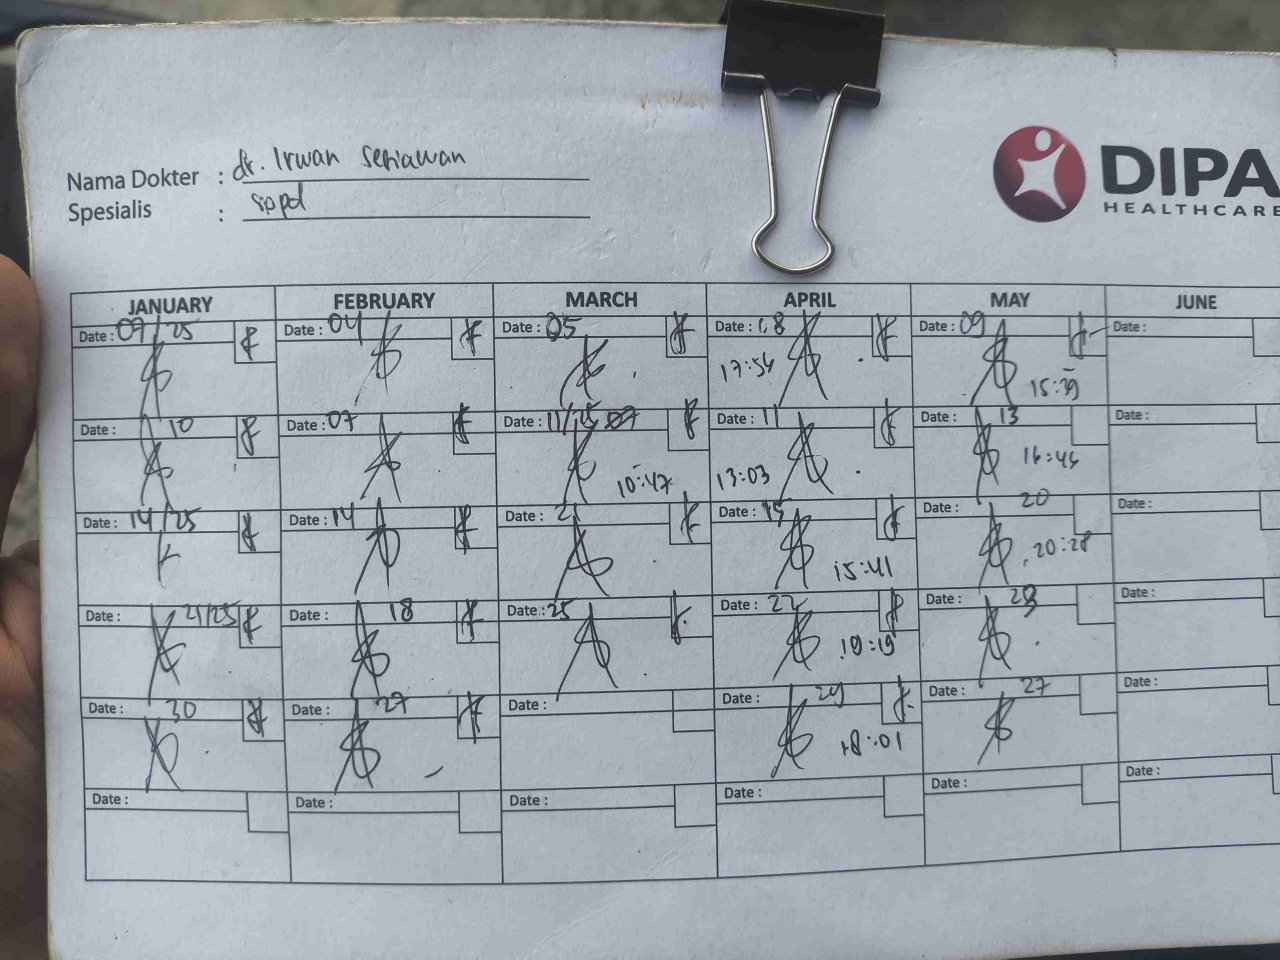 Nama Dokter : dr. Irwan Setiawan
Spesialis : sppd
DIPA
HEALTHCARE
JANUARY FEBRUARY MARCH APRIL MAY JUNE
Date : 07/25 Date : 04 Date : 05 Date : 08 Date : 09 Date :
17:54 15:39
Date : 10 Date : 07 Date : 11/25 Date : 11 Date : 13 Date :
10:47 13:03 16:46
Date : 14/25 Date : 14 Date : 21 Date : 15 Date : 20 Date :
15:41 20:28
Date : 21/25 Date : 18 Date : 25 Date : 22 Date : 23 Date :
18:19
Date : 30 Date : 27 Date : Date : 29 Date : 27 Date :
18:01
Date : Date : Date : Date : Date : Date :